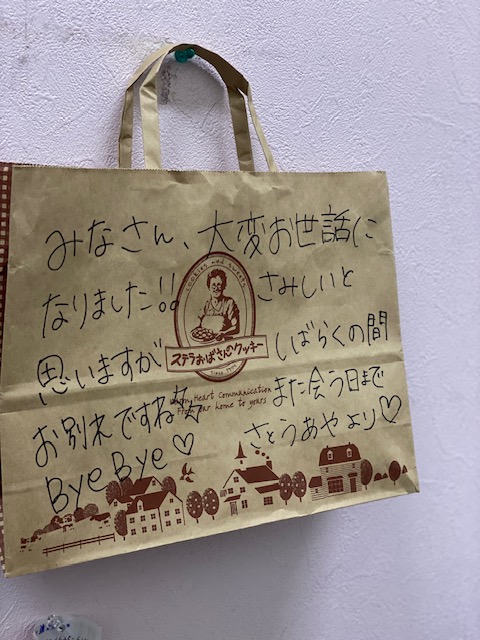 みなさん、大変お世話に
なりました!! さみしいと
思いますが しばらくの間
お別れですね また会う日まで
Bye Bye♡ さとうあやより♡
cookies and sweets
ステラおばさんのクッキー
SINCE
Warm Heart Communication
From our home to yours